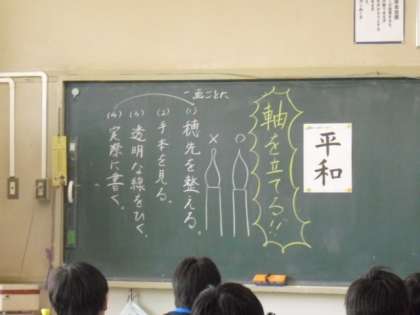 平和
軸を立てる!!
○
×
一画ごとに
(1) 穂先を整える。
(2) 手本を見る。
(3) 透明な線をひく。
(4) 実際に書く。